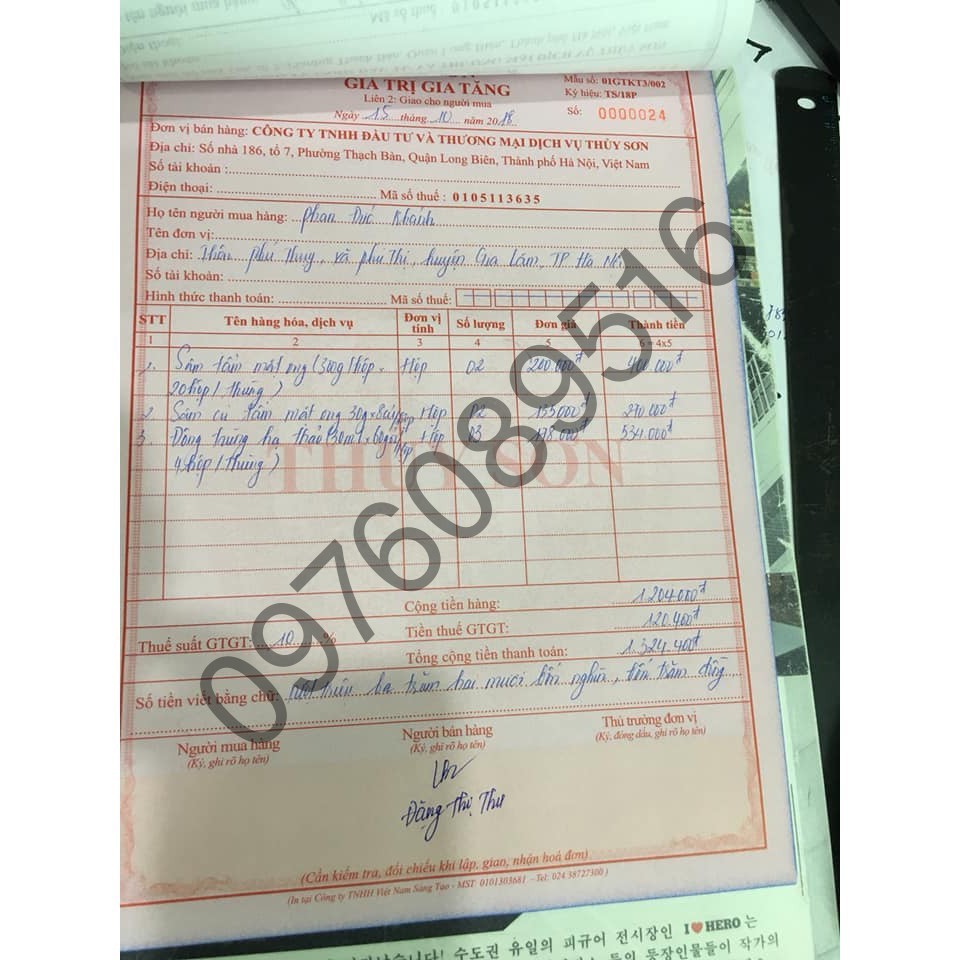 GIÁ TRỊ GIA TĂNG
Mẫu số: 01GTKT3/002
Liên 2: Giao cho người mua
Ký hiệu: TS/18P
Ngày 15 tháng 10 năm 2018
Số: 0000024
Đơn vị bán hàng: CÔNG TY TNHH ĐẦU TƯ VÀ THƯƠNG MẠI DỊCH VỤ THỦY SƠN
Địa chỉ: Số nhà 186, tổ 7, Phường Thạch Bàn, Quận Long Biên, Thành phố Hà Nội, Việt Nam
Số tài khoản :
Điện thoại: Mã số thuế : 0105113635
Họ tên người mua hàng: Phan Đức Khánh
Tên đơn vị:
Địa chỉ: Thôn Phú Thụy, xã Phú Thị, huyện Gia Lâm, TP Hà Nội
Số tài khoản:
Hình thức thanh toán: Mã số thuế:
STT Tên hàng hóa, dịch vụ Đơn vị tính Số lượng Đơn giá Thành tiền
1 2 3 4 5 6 = 4x5
1. Sâm tẩm mật ong (300g/hộp x Hộp 02 200.000đ 400.000đ
20hộp/thùng)
2. Sâm củ tẩm mật ong 30g x 8 hộp 02 135.000đ 270.000đ
3. Đông trùng hạ thảo (30ml x 60gói/hộp Hộp 03 178.000đ 534.000đ
4hộp/thùng)
THỦY SƠN
Cộng tiền hàng: 1.204.000đ
Thuế suất GTGT: 10 % Tiền thuế GTGT: 120.400đ
Tổng cộng tiền thanh toán: 1.324.400đ
Số tiền viết bằng chữ: Một triệu ba trăm hai mươi bốn nghìn, bốn trăm đồng
Người mua hàng Người bán hàng Thủ trưởng đơn vị
(Ký, ghi rõ họ tên) (Ký, ghi rõ họ tên) (Ký, đóng dấu, ghi rõ họ tên)
Đặng Thị Thu
(Cần kiểm tra, đối chiếu khi lập, giao, nhận hoá đơn)
(In tại Công ty TNHH Việt Nam Sáng Tạo - MST: 0101303681 - Tel: 024.38727300 )
0976089516
수도권 유일의 피규어 전시장인 I ♥ HERO 는
등장인물들이 작가의